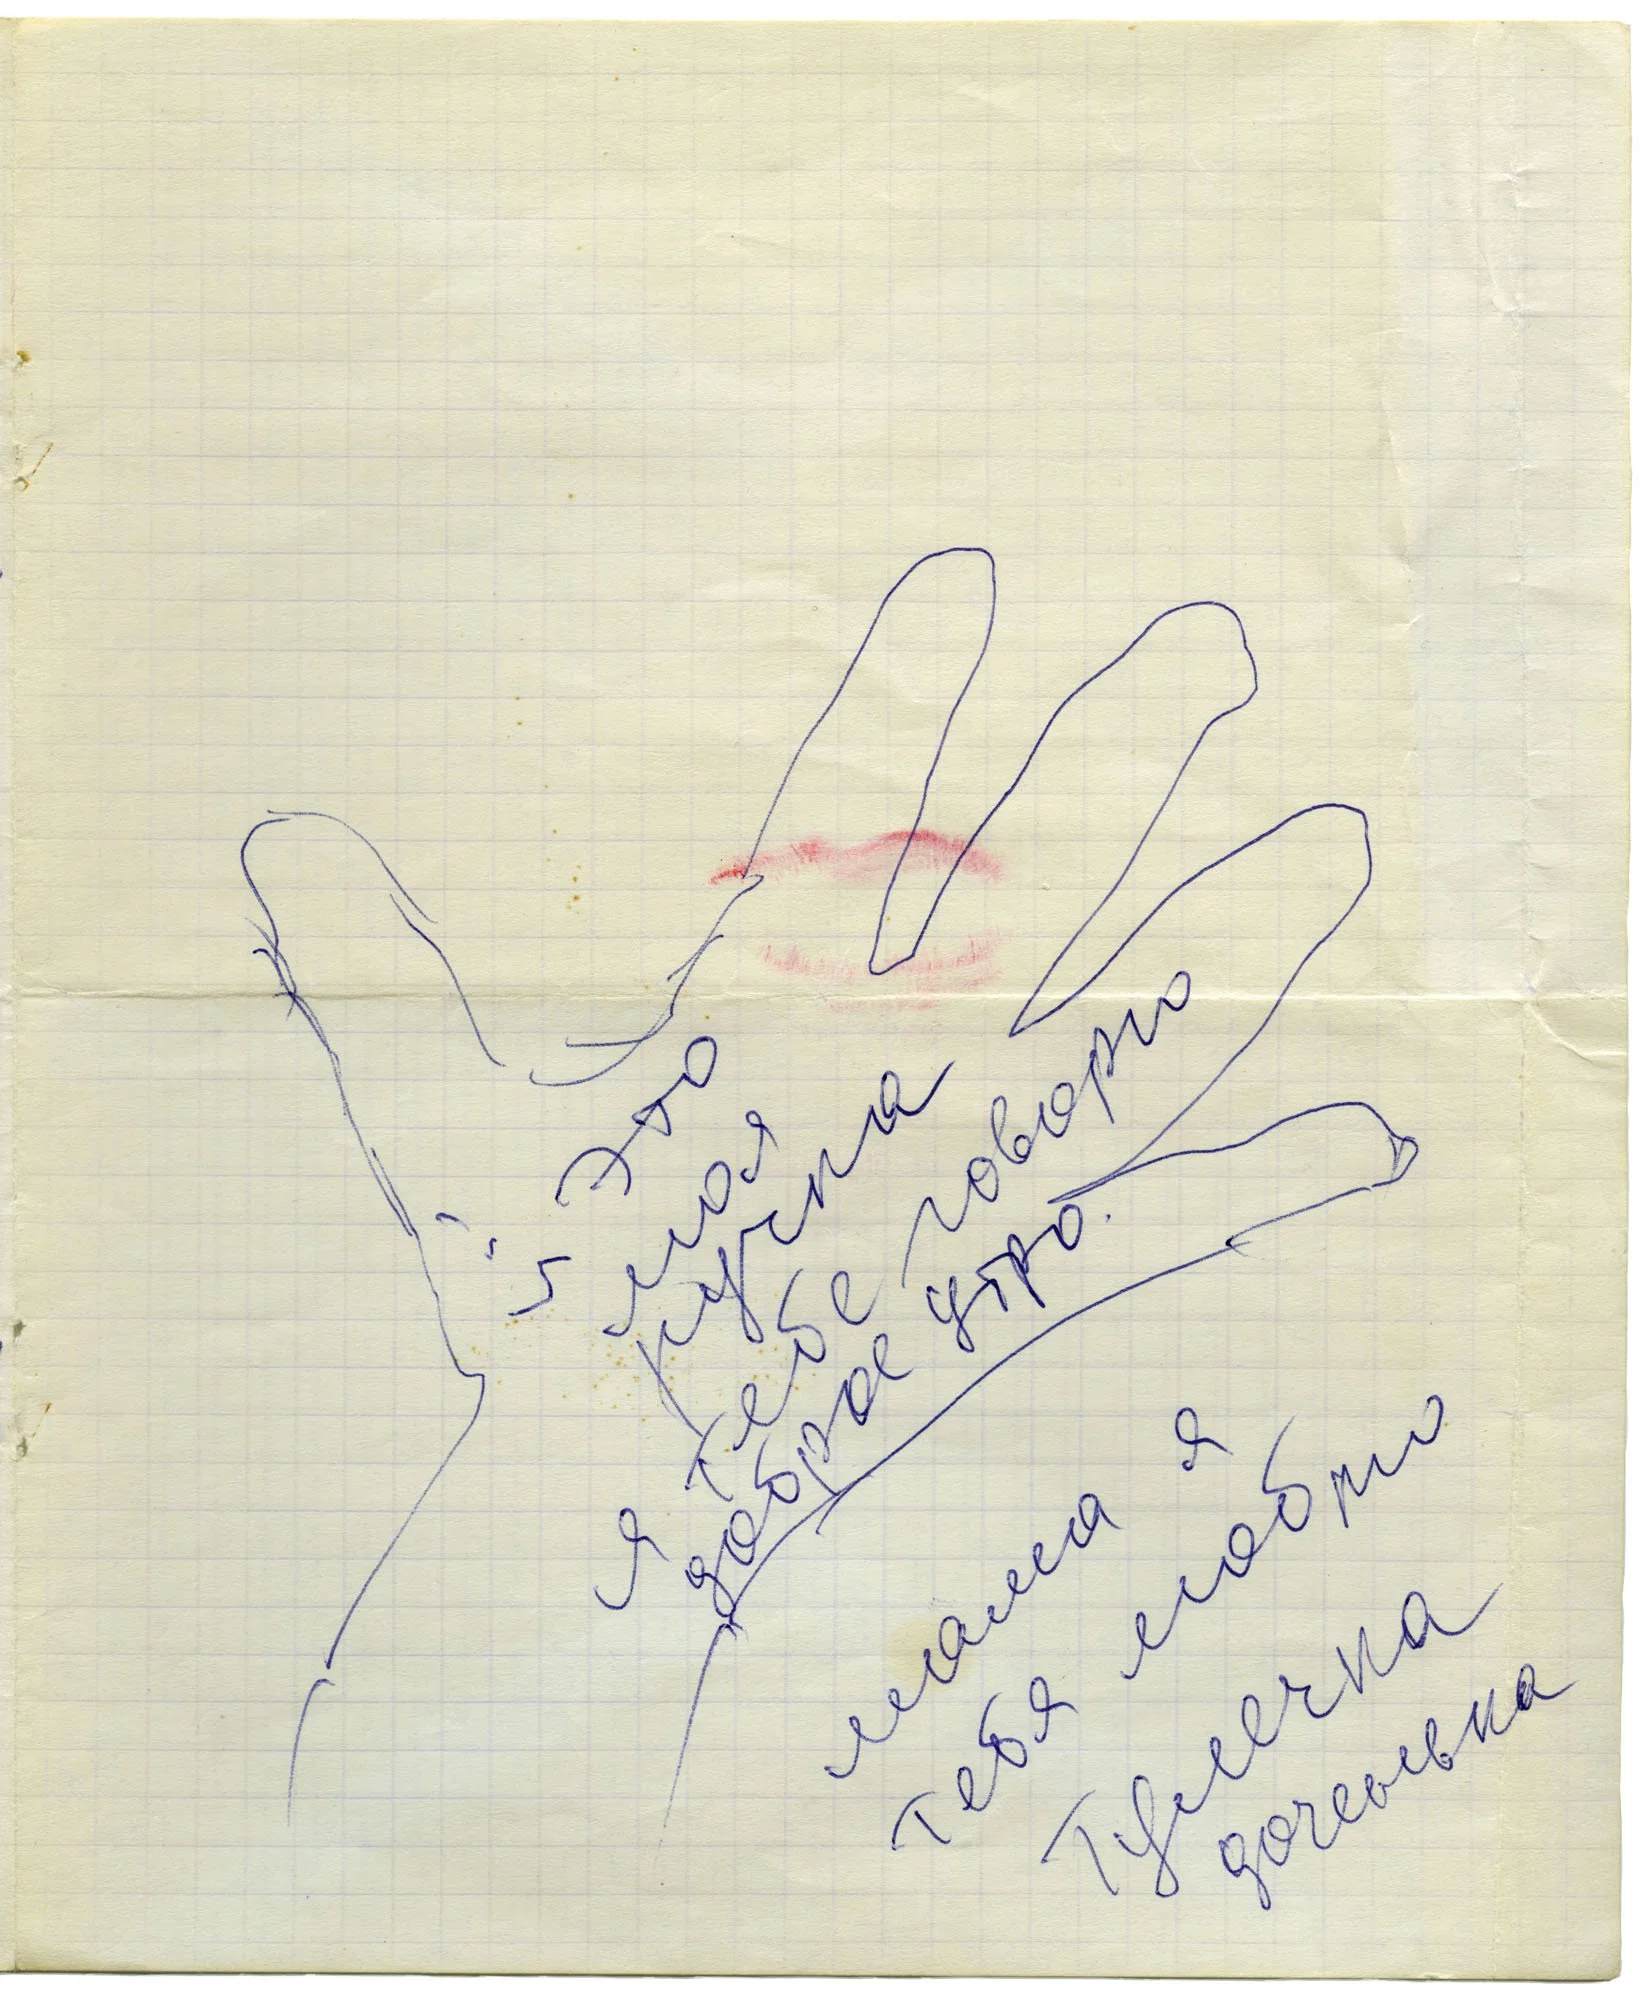 Это
моя
ручка
я тебе говорю
доброе утро.
мама я
тебя люблю
Гулечка
доченька